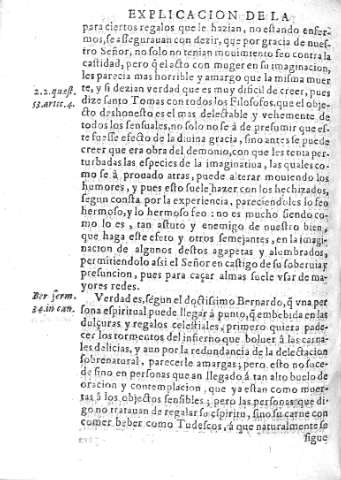 EXPLICACION DE LA
para ciertos regalos que le hazian, no estando enfer-
mos, se assegurauan con dezir, que por gracia de nues-
tro Señor, no solo no tenian mouimiento feo contra la
castidad, pero q̃ el acto con muger en su imaginacion,
les parecia mas horrible y amargo que la misma muer
te, y si dezian verdad que es muy dificil de creer, pues
2.2. quæst.
53. artic. 4.
dize santo Tomas con todos los Filosofos, que el obje-
cto deshonesto es el mas delectable y vehemente de
todos los sensuales, no solo no se à de presumir que es-
te fuesse efecto de la diuina gracia, sino antes se puede
creer que era obra del demonio, con que les tenia per-
turbadas las especies de la imaginatiua, las quales co-
mo se à prouado atras, puede alterar mouiendo los
humores, y pues esto suele hazer con los hechizados,
segun consta por la experiencia, pareciendoles lo feo
hermoso, y lo hermoso feo: no es mucho siendo co-
mo lo es, tan astuto y enemigo de nuestro bien,
que haga este efeto y otros semejantes, en la imagi-
nacion de algunos destos agapetas y alumbrados,
permitiendolo assi el Señor en castigo de su soberuia y
presuncion, pues para caçar almas suele vsar de ma-
yores redes.
Ber serm.
34. in can.
Verdad es, segun el doctissimo Bernardo, q̃ vna per
sona espiritual puede llegar á punto, q̃ embebida en las
dulçuras y regalos celestiales, primero quiera pade-
cer los tormentos del infierno que boluer á las carna-
les delicias, y aun por la redundancia de la delectacion
sobrenatural, parecerle amargas; pero esto no suce-
de sino en personas que an llegado á tan alto buelo de
oracion y contemplacion, que ya estan como muer-
tas à los objectos sensibles; pero las personas que di-
go no tratauan de regalar su espiritu, sino su carne con
comer beber como Tudescos, á que naturalmente se
sigue